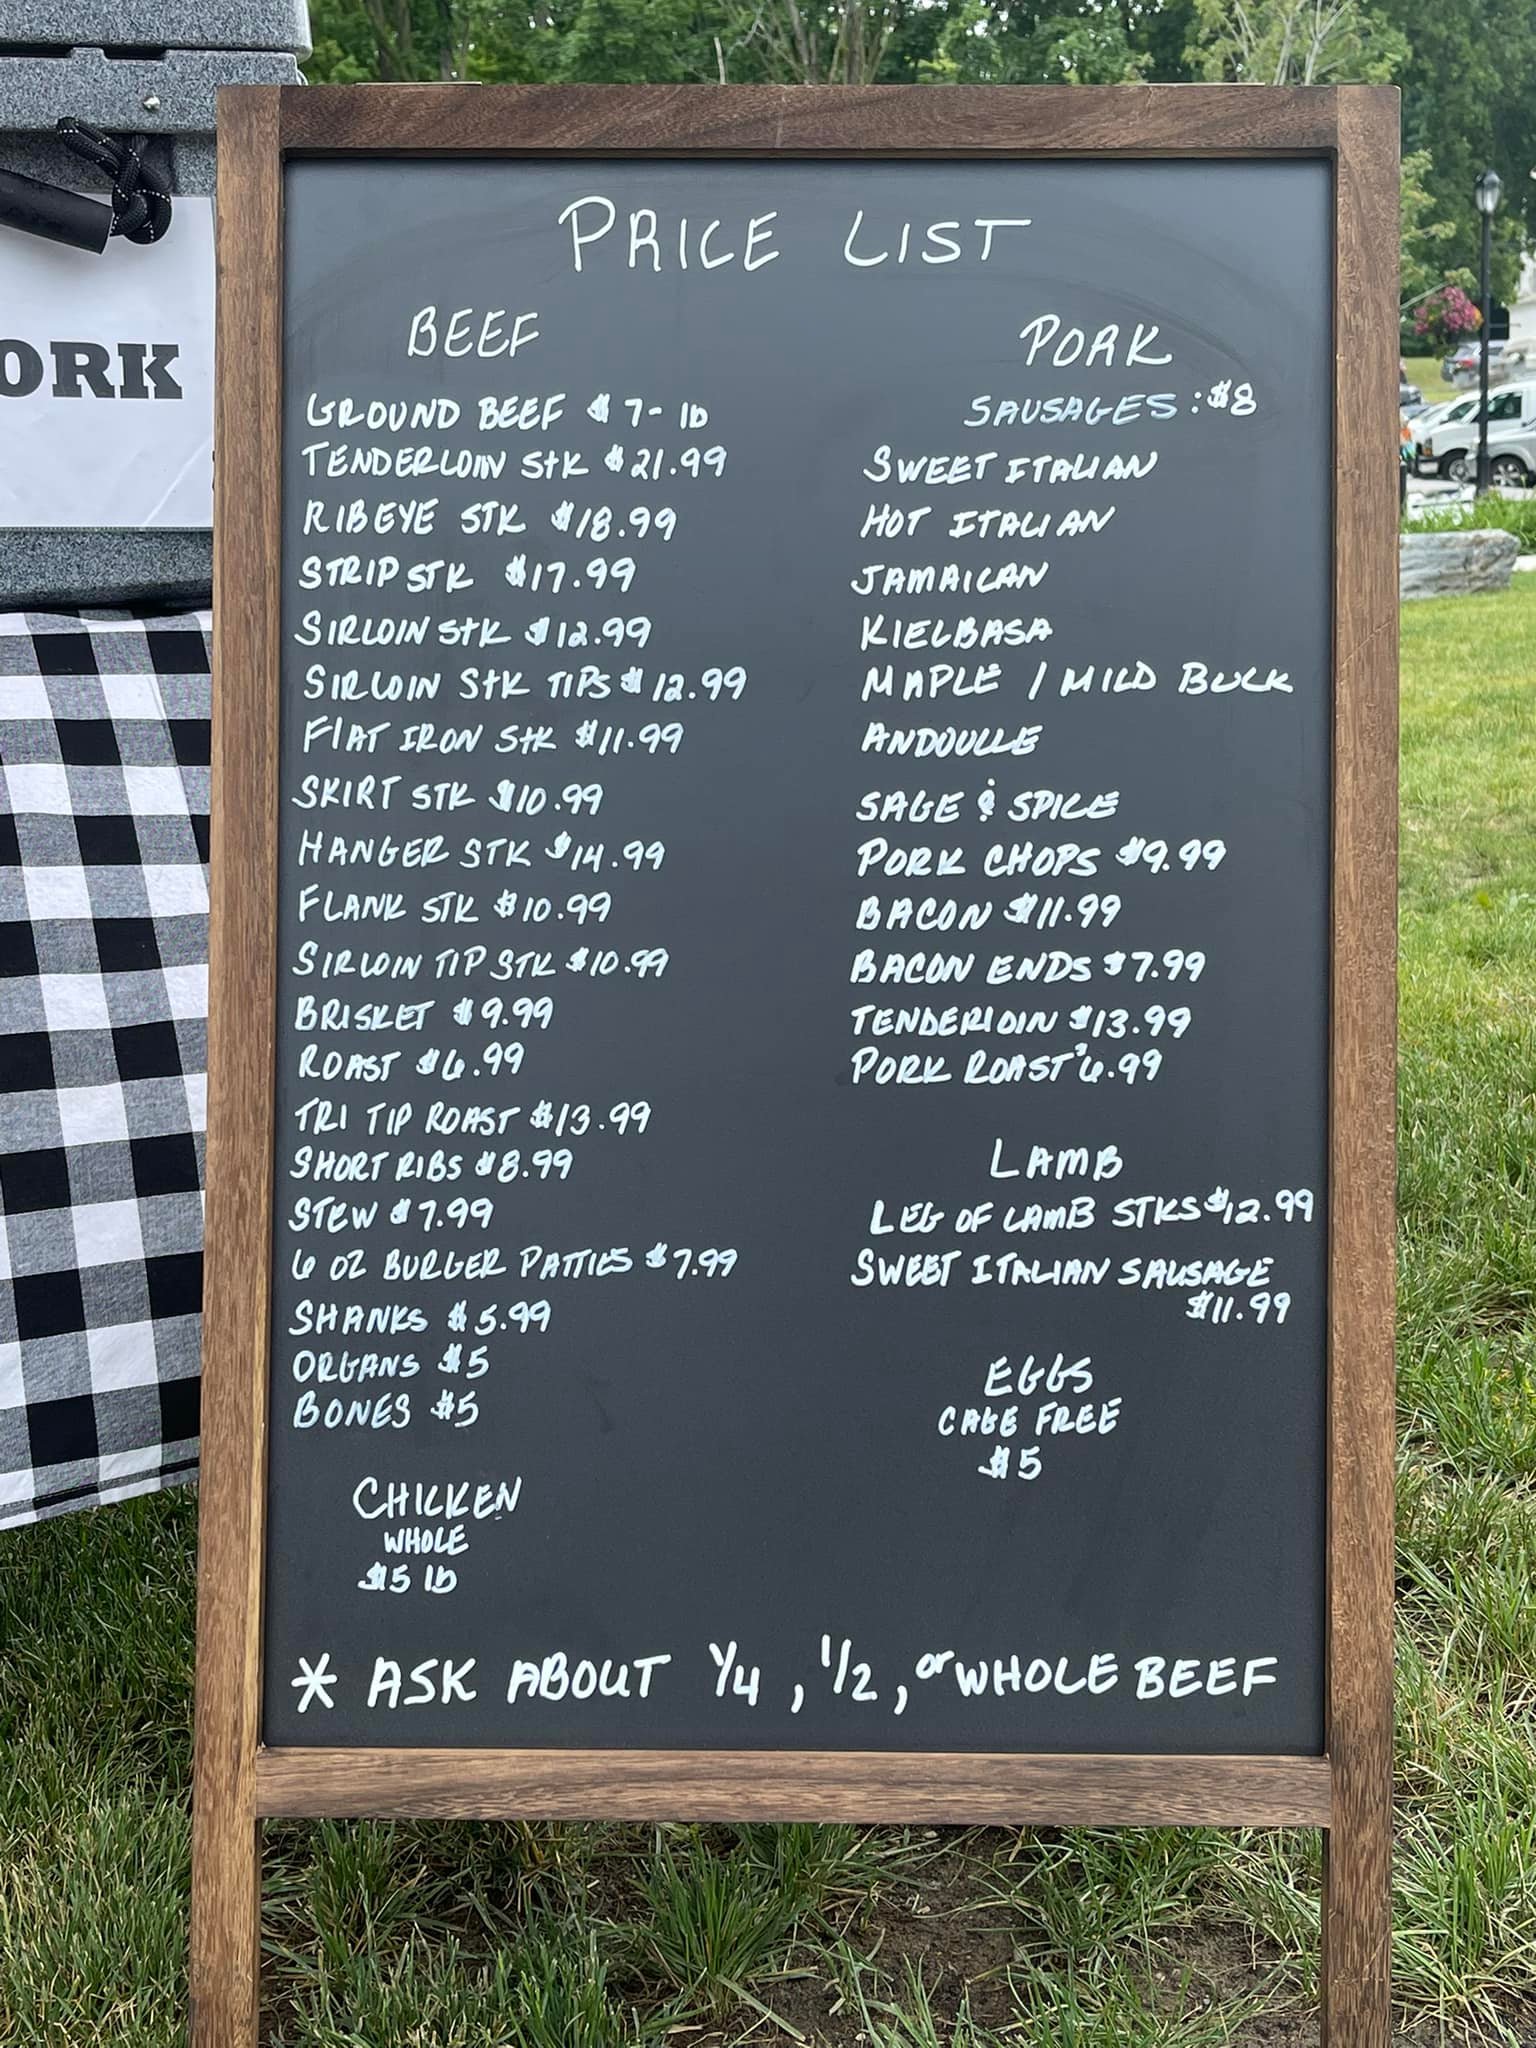 ORK
PRICE LIST
BEEF
GROUND BEEF $7- lb
TENDERLOIN STK $21.99
RIBEYE STK $18.99
STRIP STK $17.99
SIRLOIN STK $12.99
SIRLOIN STK TIPS $12.99
FLAT IRON STK $11.99
SKIRT STK $10.99
HANGER STK $14.99
FLANK STK $10.99
SIRLOIN TIP STK $10.99
BRISKET $9.99
ROAST $6.99
TRI TIP ROAST $13.99
SHORT RIBS $8.99
STEW $7.99
6 OZ BURGER PATTIES $7.99
SHANKS $5.99
ORGANS $5
BONES $5
CHICKEN
WHOLE
$5 lb
PORK
SAUSAGES: $8
SWEET ITALIAN
HOT ITALIAN
JAMAICAN
KIELBASA
MAPLE / MILD BULK
ANDOULLE
SAGE & SPICE
PORK CHOPS $9.99
BACON $11.99
BACON ENDS $7.99
TENDERLOIN $13.99
PORK ROAST $6.99
LAMB
LEG OF LAMB STKS $12.99
SWEET ITALIAN SAUSAGE
$11.99
EGGS
CAGE FREE
$5
* ASK ABOUT 1/4, 1/2, or WHOLE BEEF